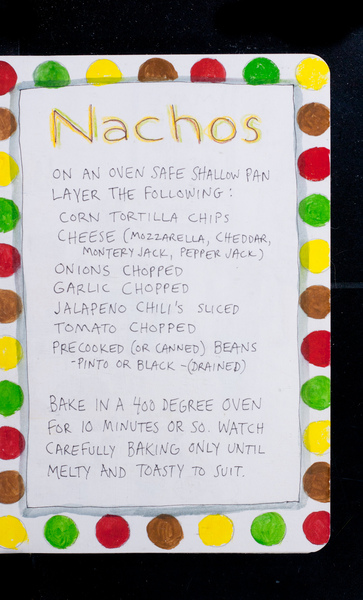 Nachos
ON AN OVEN SAFE SHALLOW PAN
LAYER THE FOLLOWING:
CORN TORTILLA CHIPS
CHEESE (MOZZARELLA, CHEDDAR,
MONTERY JACK, PEPPER JACK)
ONIONS CHOPPED
GARLIC CHOPPED
JALAPENO CHILI'S SLICED
TOMATO CHOPPED
PRECOOKED (OR CANNED) BEANS
-PINTO OR BLACK -(DRAINED)
BAKE IN A 400 DEGREE OVEN
FOR 10 MINUTES OR SO. WATCH
CAREFULLY BAKING ONLY UNTIL
MELTY AND TOASTY TO SUIT.